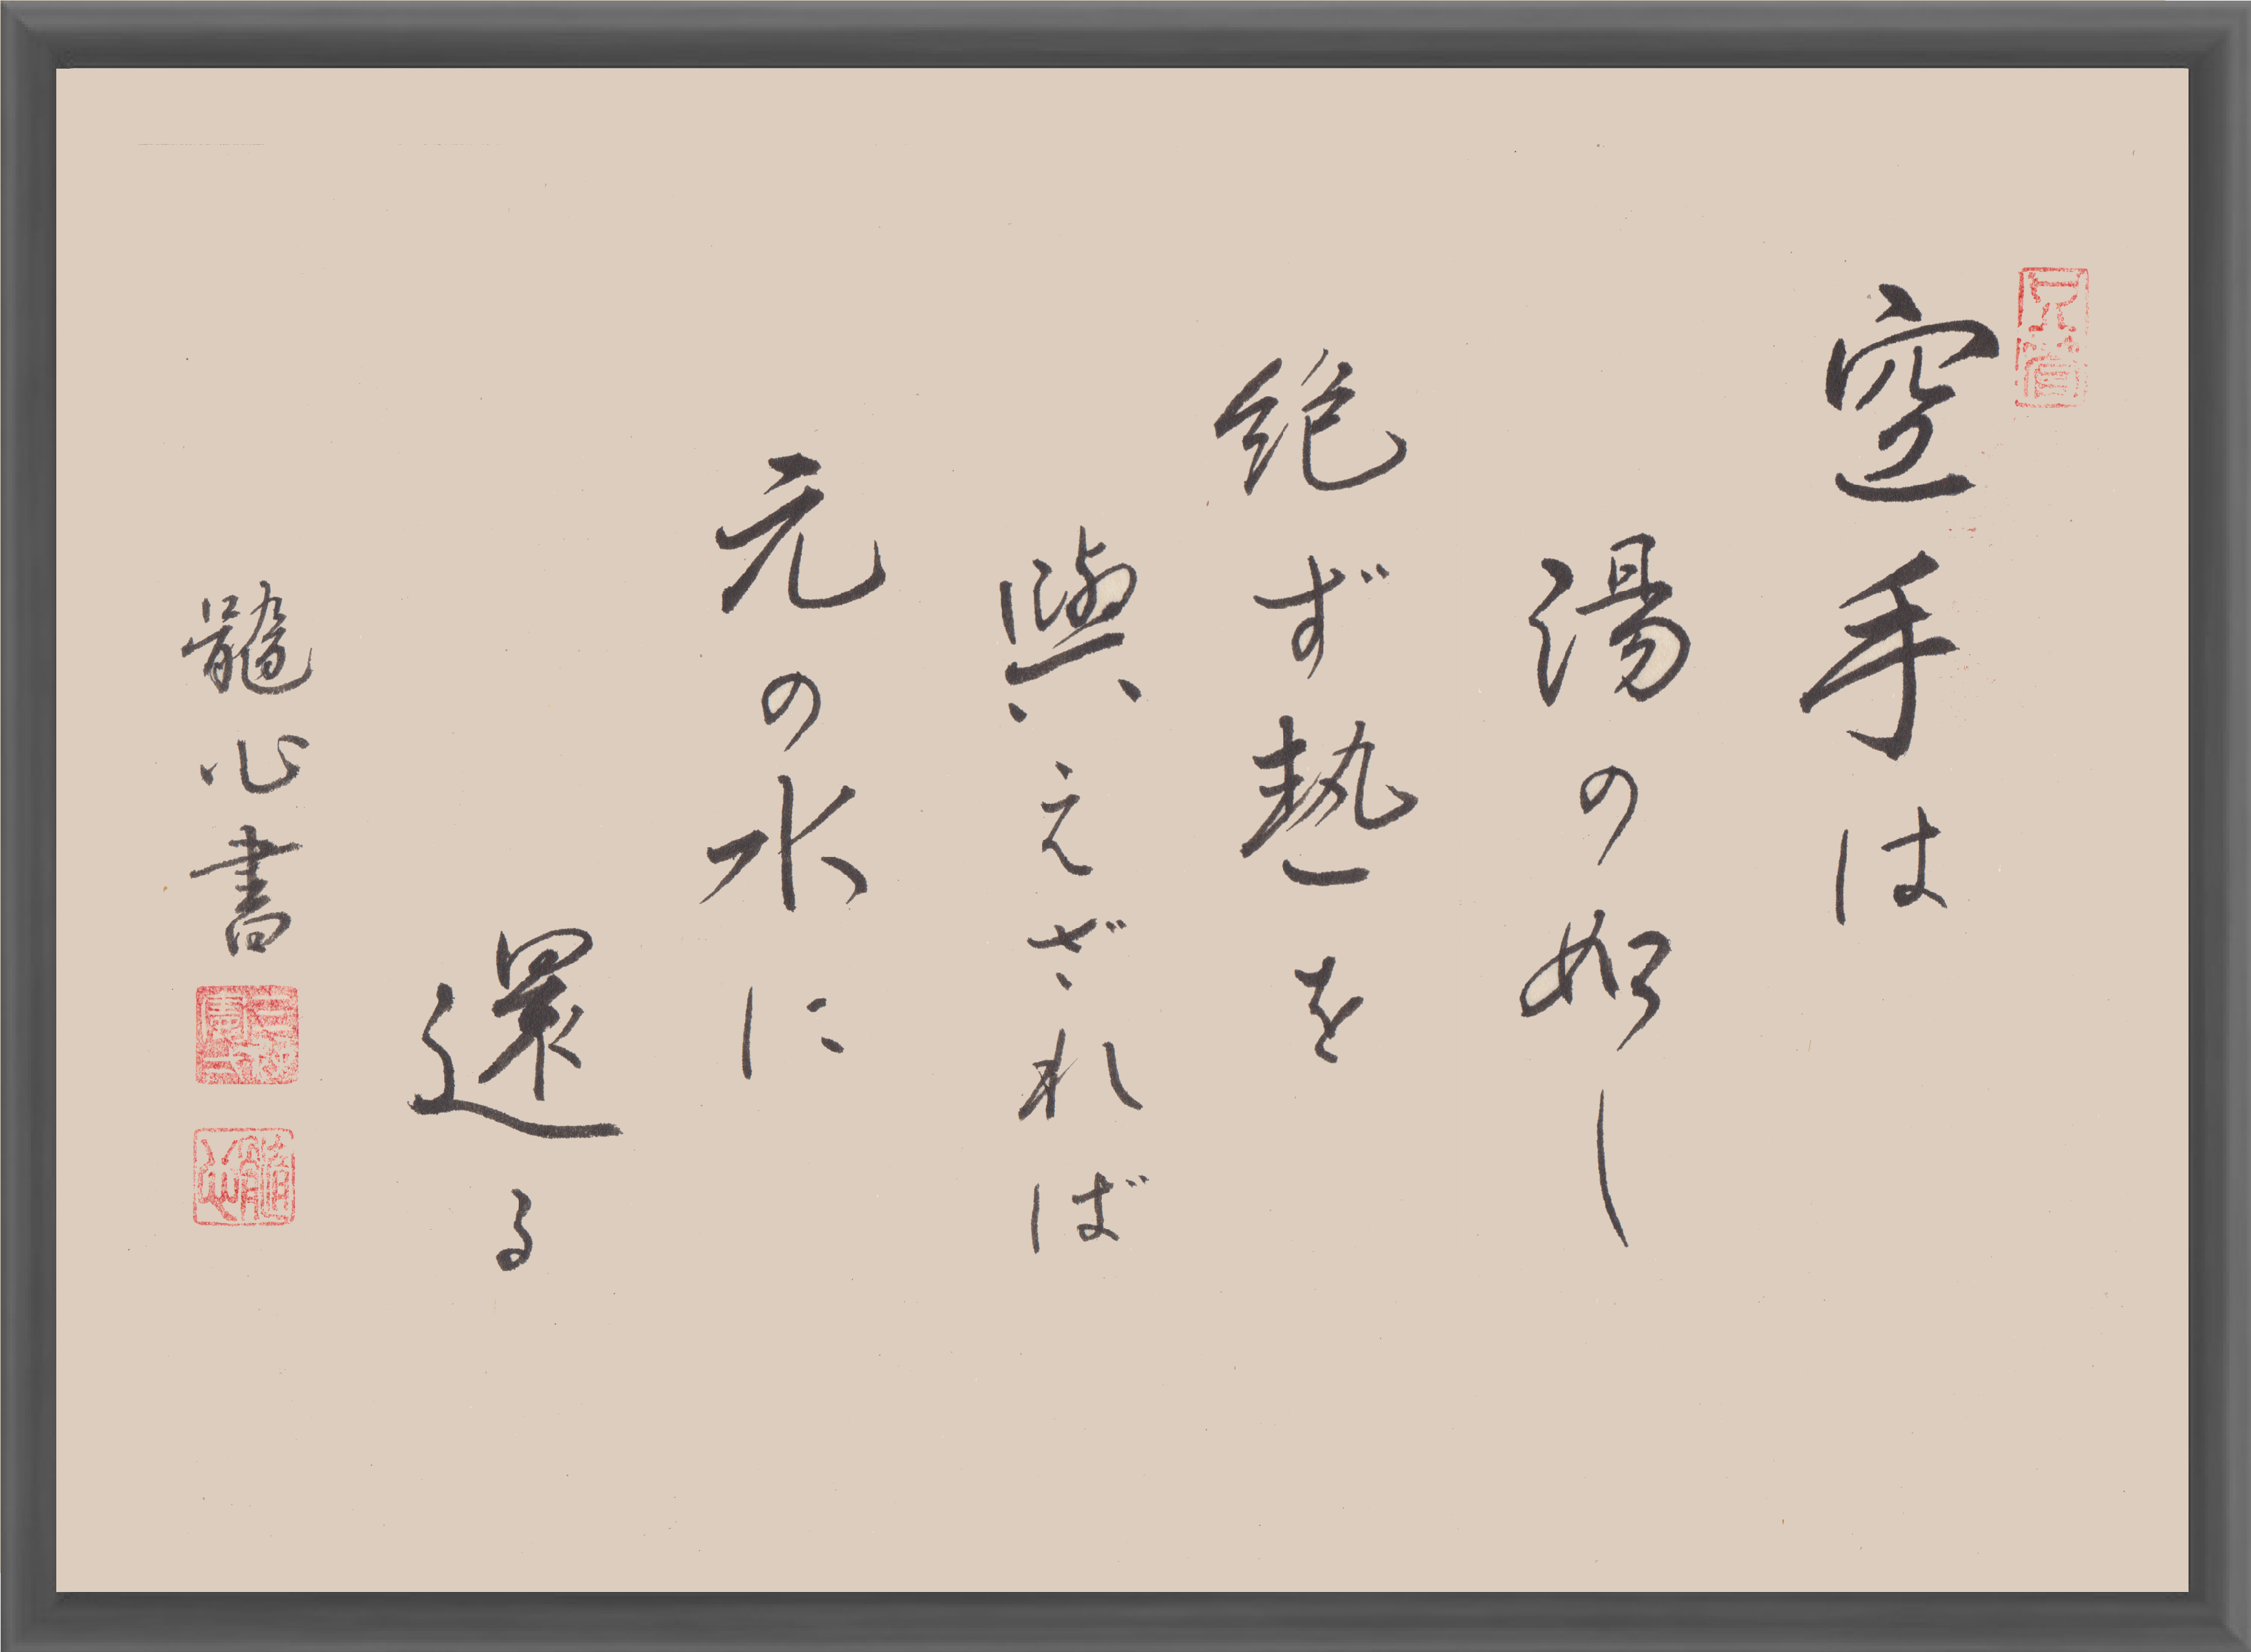 空手は
湯の如し
絶ず熱を
與えざれば
元の水に
還る
髓心書